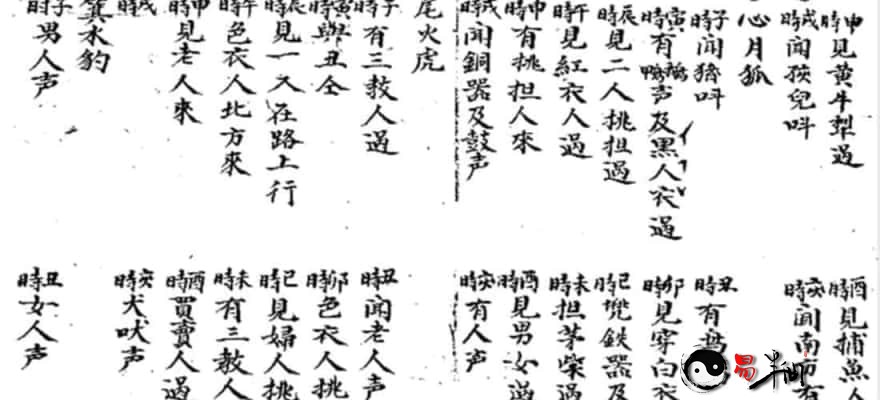 申時見黃牛犁過
酉時見捕魚人
戌時聞孩兒叫
亥時聞南方有
心月狐
子時聞猪叫
丑時有鵝
寅時有鵝鴨声及黑人衣過
卯時見穿白衣
辰時見二人挑担過
巳時兜鉄器及
午時見紅衣人過
未時担茅柴過
申時有挑担人來
酉時見男女過
戌時聞銅器及鼓声
亥時有人声
尾火虎
子時有三教人過
丑時聞老人声
寅時與丑仝
卯時色衣人挑
辰時見一人在路上行
巳時見婦人挑
午時色衣人北方來
未時有三教人
申時見老人來
酉時買賣人過
戌時
亥時犬吠声
箕水豹
子時男人声
丑時女人声
易半师